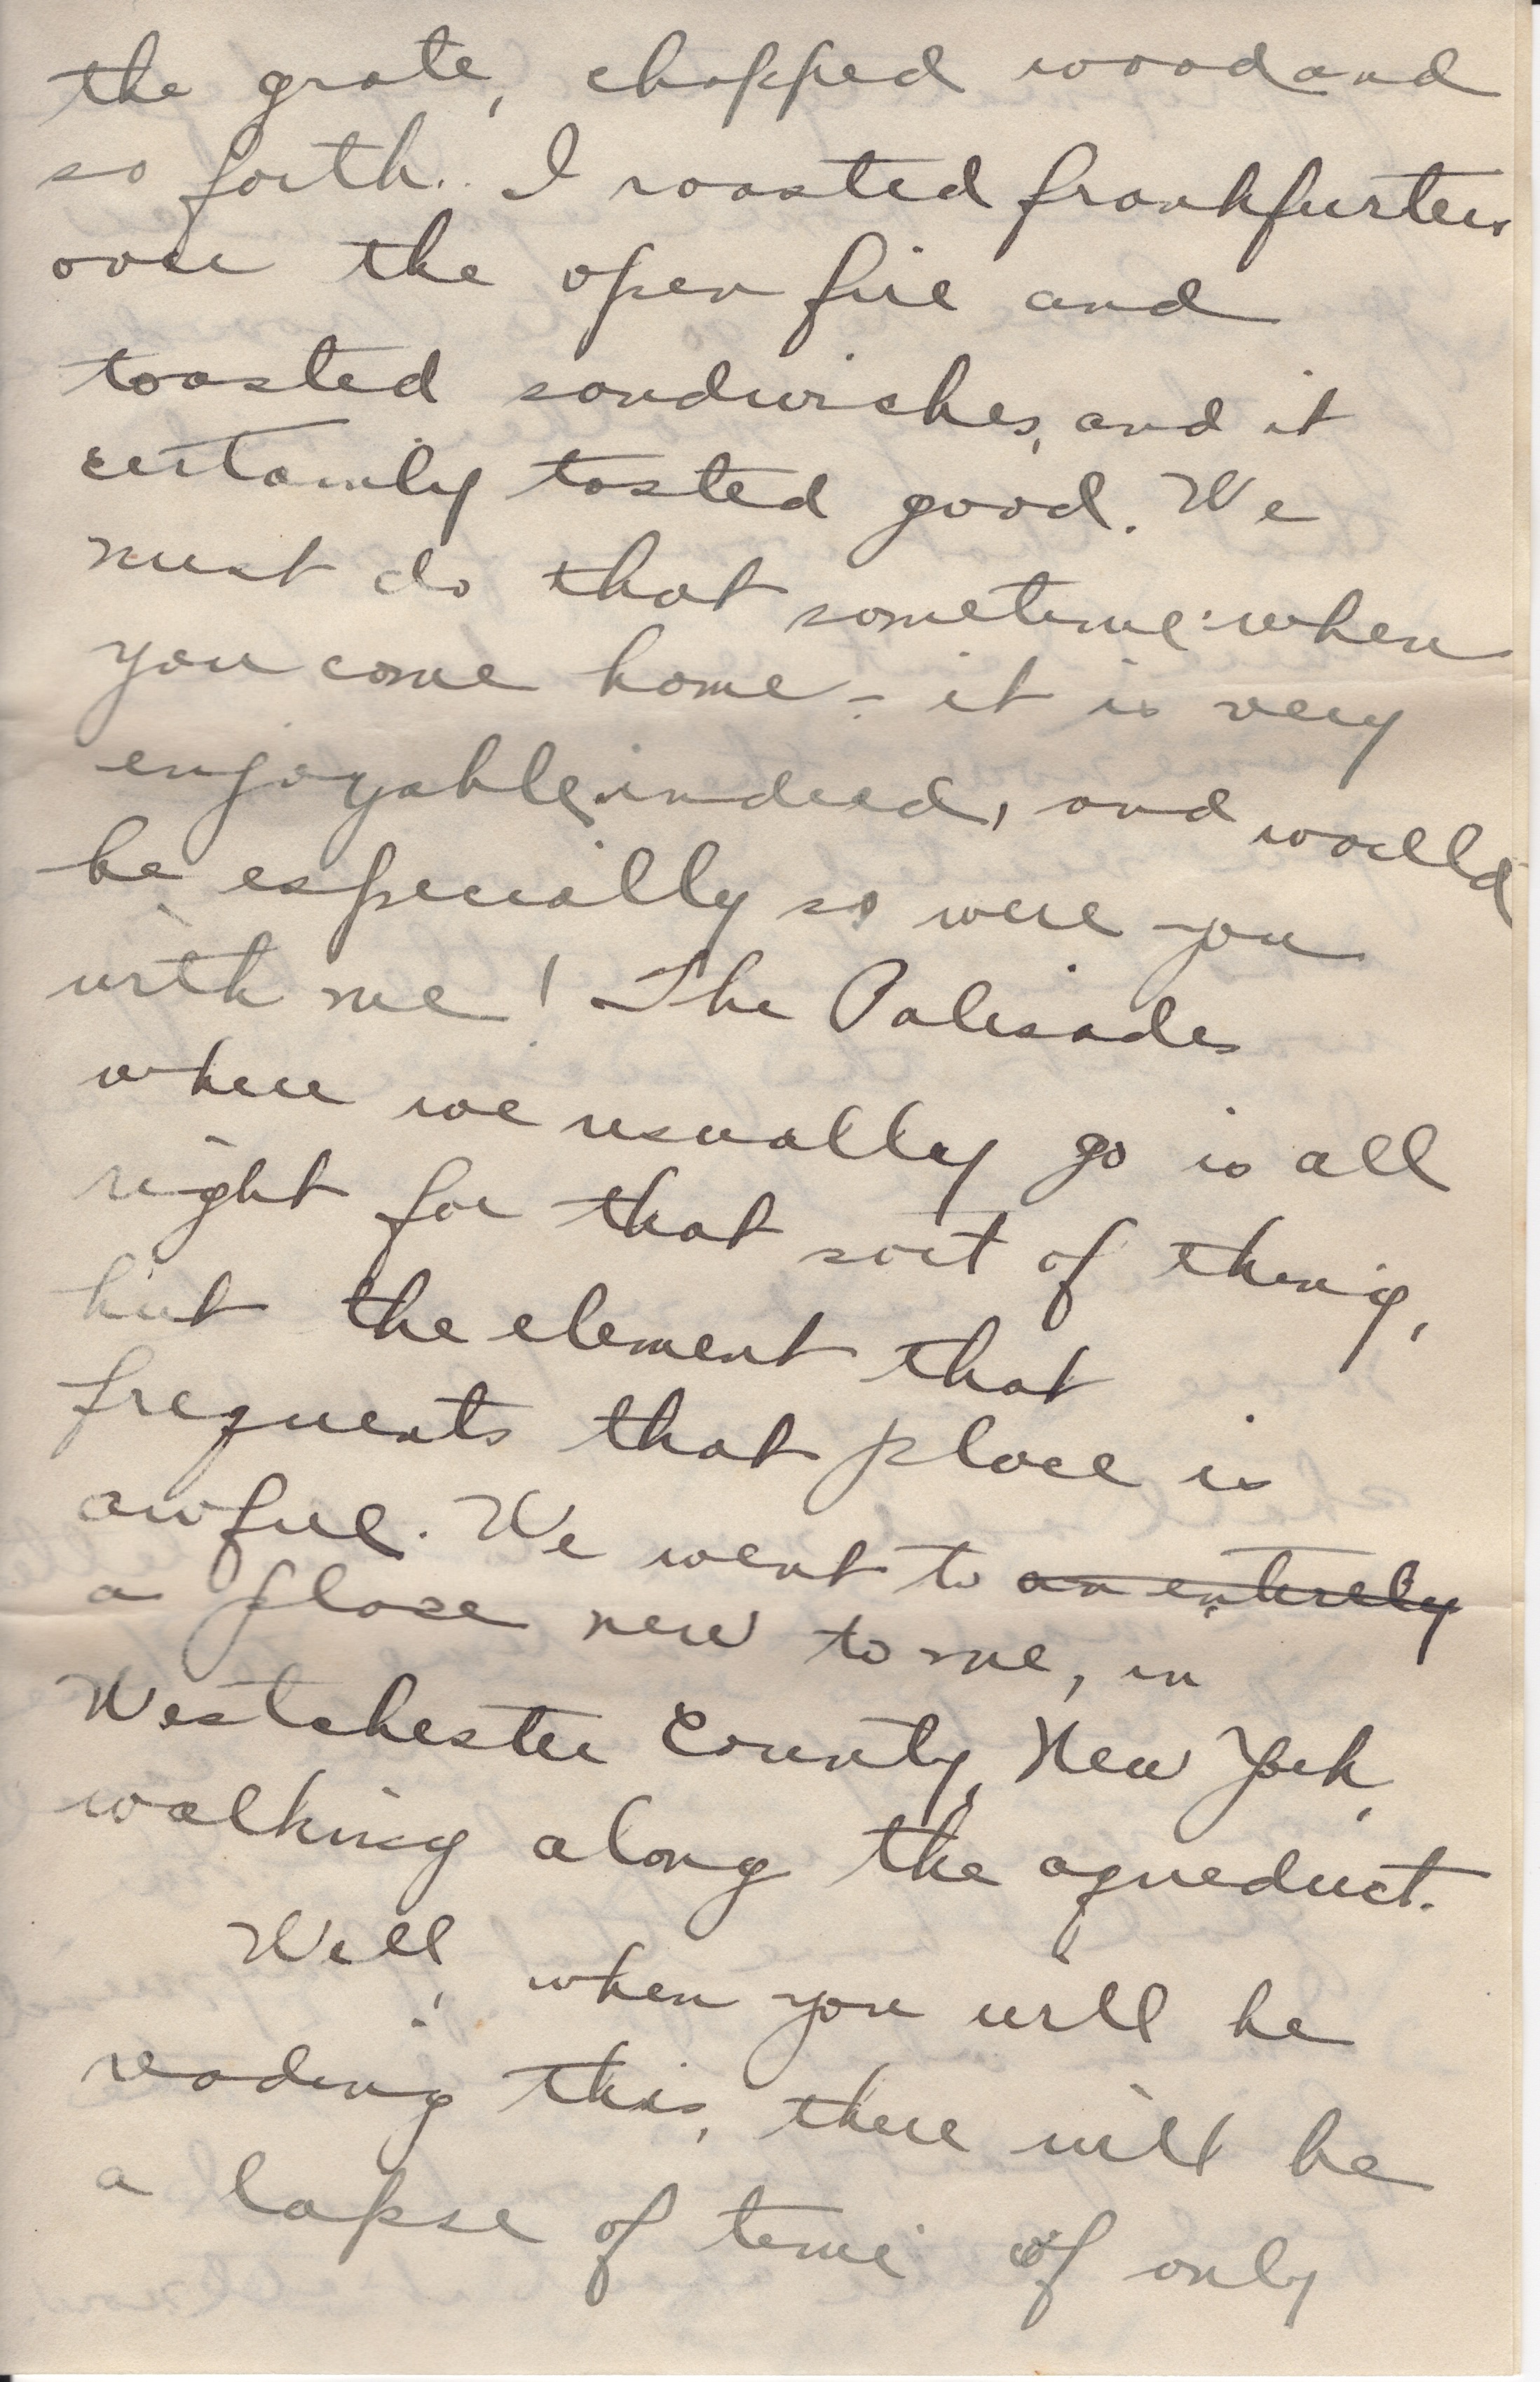 the grate, chopped wood and
so forth. I roasted frankfurters
over the open fire and
toasted sandwiches, and it
certainly tasted good. We
must do that sometime when
you come home - it is very
enjoyable indeed, and would
be especially so were you
with me! The Palisades
where we usually go is all
right for that sort of thing,
but the element that
frequents that place is
awful. We went to an entirely
a place new to me, in
Westchester County, New York,
walking along the aqueduct.
Well, when you will be
reading this, there will be
a lapse of time of only